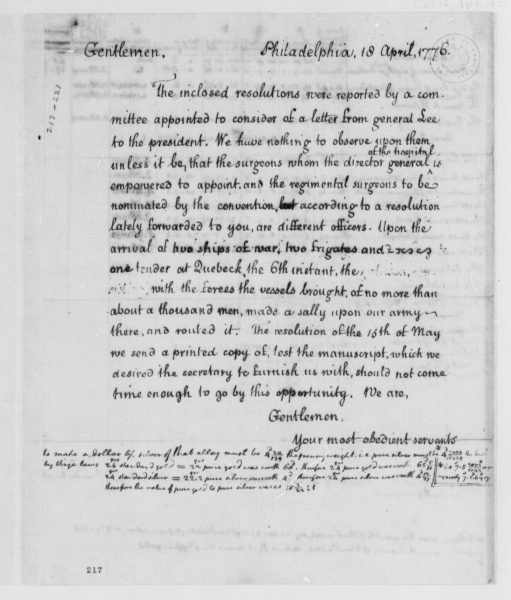 Gentlemen. Philadelphia, 18 April, 1776.
The inclosed resolutions were reported by a com-
mittee appointed to consider of a letter from general Lee
to the president. We have nothing to observe upon them,
unless it be, that the surgeons whom the director general of the hospital is
empowered to appoint, and the regimental surgeons to be
nominated by the convention, according to a resolution
lately forwarded to you, are different officers. Upon the
arrival of two ships of war, two frigates and
one tender at Quebeck, the 6th instant, the
with the forces the vessels brought, of no more than
about a thousand men, made a sally upon our army
there, and routed it. The resolution of the 15th of May
we send a printed copy of, lest the manuscript, which we
desired the secretary to furnish us with, should not come
time enough to go by this opportunity. We are,
Gentlemen.
Your most obedient servants
to make a dollar of silver of that alloy must be pennyweight. i.e. pure silver must be
by these laws standard gold = pure gold was worth therefore pure gold was worth
standard silver = pure silver was worth therefore pure silver was worth
therefore the value of pure gold to pure silver was as : 1
217-221
217